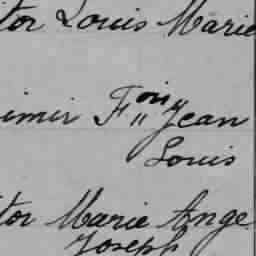 tor Louis Marie
imir Fois Jean
Louis
tor Marie Ange
Joseph